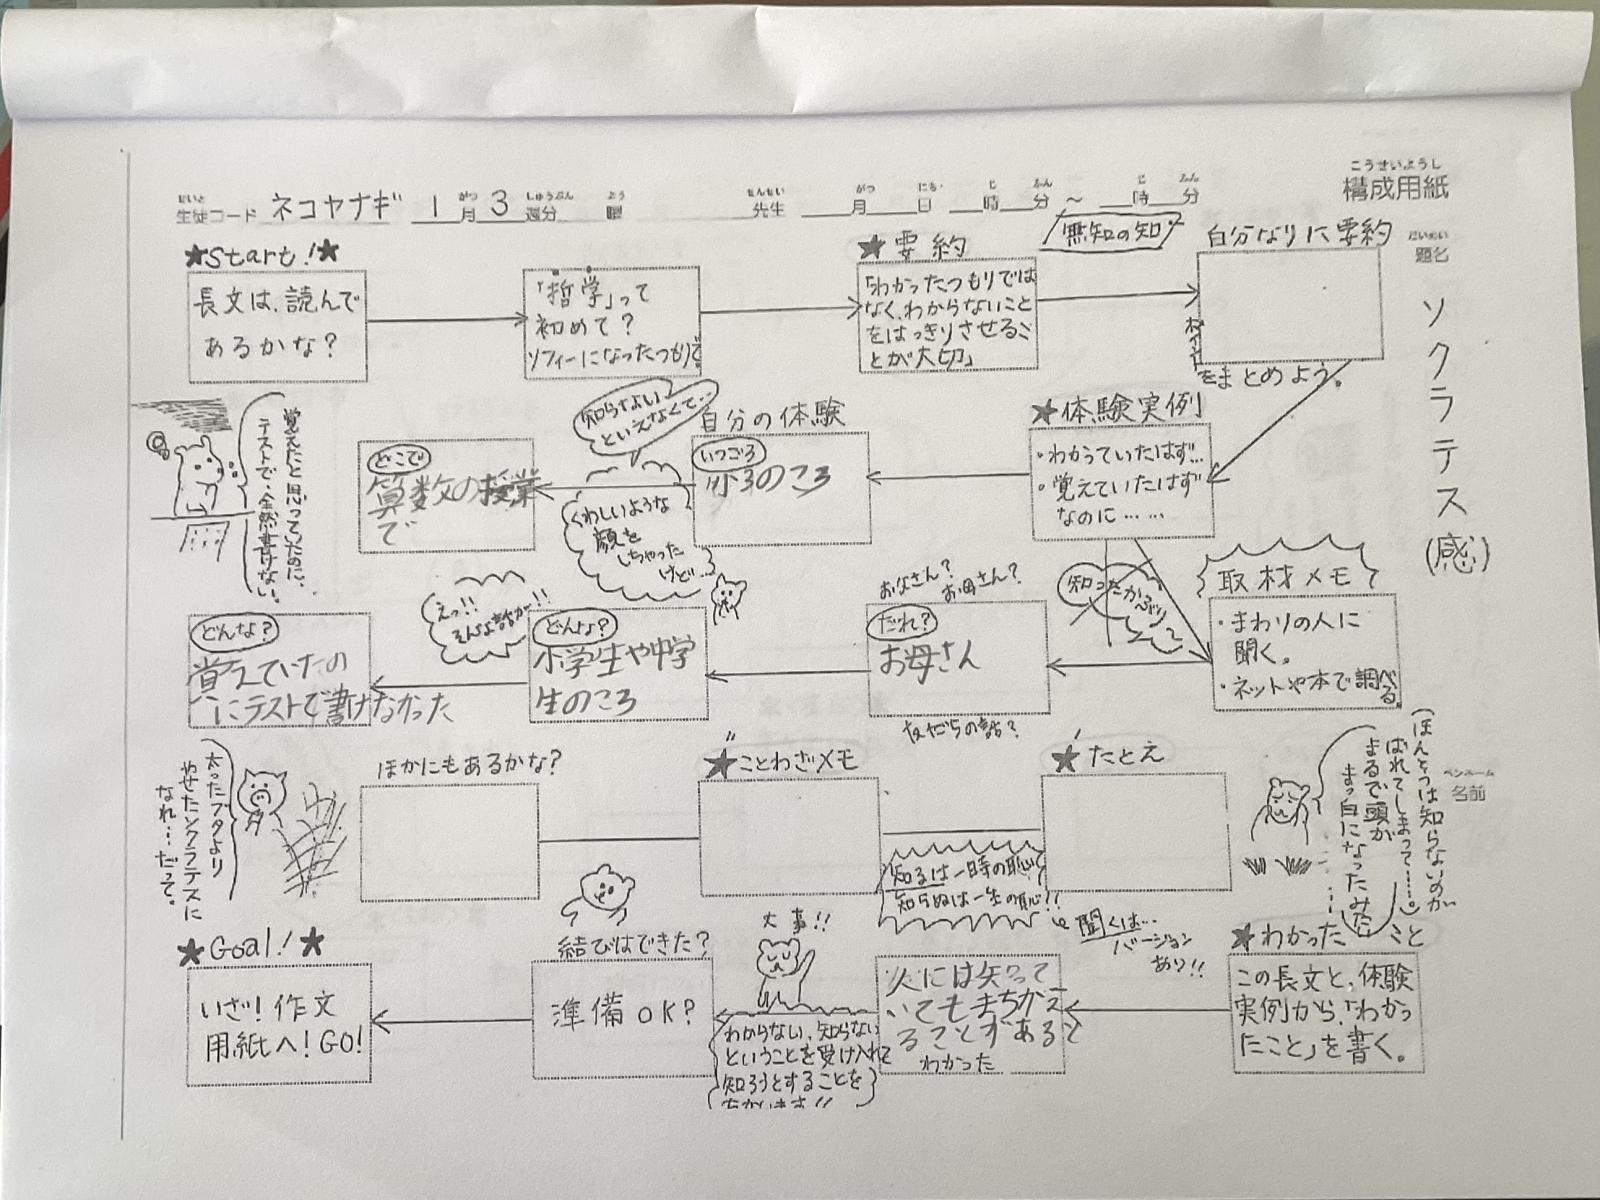 こうせいようし
構成用紙
生徒コード ネコヤナギ 1月 3週分 曜 先生 月 日 時 分 ～ 時 分
題名
ソクラテス(感)
ペンネーム
名前
★Start!★
長文は、読んで
あるかな?
「哲学」って
初めて?
ソフィーになったつもりで
★要約
「わかったつもりでは
なく、わからないこと
をはっきりさせるこ
とが大切」
無知の知
自分なりに要約
ポイント
をまとめよう。
★体験実例
・わかっていたはず…
・覚えていたはず
なのに……
自分の体験
いつごろ
小3のころ
知らない
といえなくて…
くわしいような
顔を
しちゃった
けど…
どこで
算数の授業
で
覚えたと思っていたのに、
テストで全然書けない。
取材メモ
・まわりの人に
聞く。
・ネットや本で調べる。
知ったかぶり
お父さん?
お母さん?
だれ?
お母さん
友だちの話?
どんな?
小学生や中学
生のころ
えっ!!
そんな話が!!
どんな?
覚えていたの
にテストで書けなかった
★たとえ
ほんとうは知らないのが
ばれてしまって……。
まるで頭が
まっ白になったみたい
……
★ことわざメモ
知るは一時の恥
知らぬは一生の恥!!
聞くは…
バージョン
あり!!
ほかにもあるかな?
太ったブタより
やせたソクラテスに
なれ……だって。
★わかったこと
この長文と、体験
実例から、「わかっ
たこと」を書く。
人には知って
いてもまちがえ
ることがあると
わかった
大事!!
わからない、知らない
ということを受け入れて
知ろうとすることを
結びはできた?
準備OK?
★Goal!★
いざ!作文
用紙へ!GO!